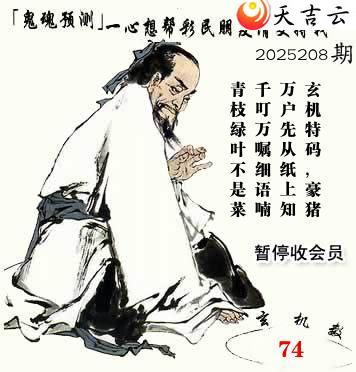 天吉云
「鬼魂预测」一心想帮彩民朋友
2025208期
玄机特码，豪猪
万户先从纸上知
千叮万嘱细语喃
青枝绿叶不是菜
暂停收会员
玄机数
74